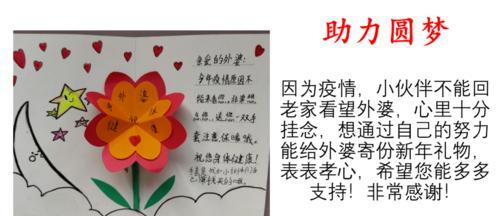 助力圆梦
因为疫情，小伙伴不能回
老家看望外婆，心里十分
挂念，想通过自己的努力
能给外婆寄份新年礼物，
表表孝心，希望您能多多
支持！非常感谢！
亲爱的外婆：
今年疫情原因不
能来看您，非常想
念您，送您一双手
套，注意保暖哦。
祝您身体健康！
外婆
健康